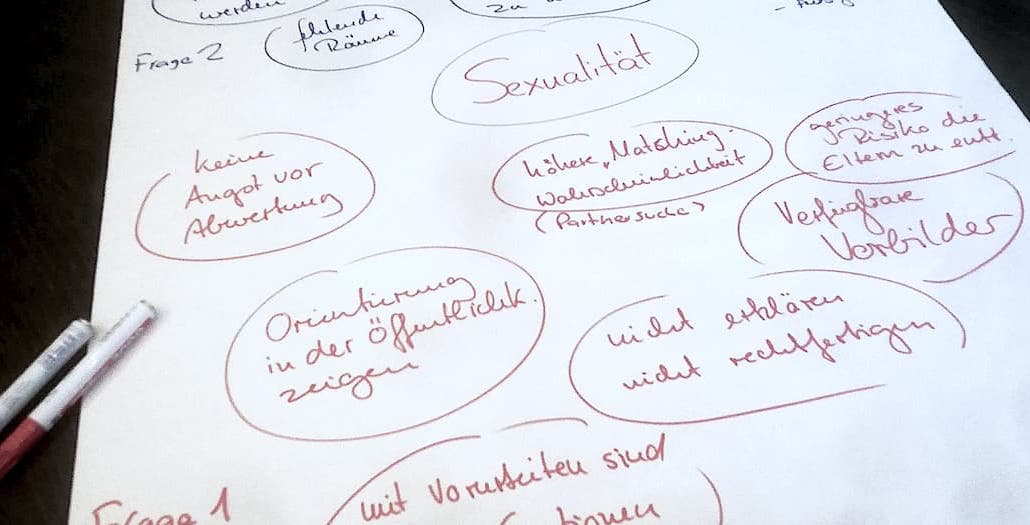 werden
fehlende
Räume
zu
Frage 2
Sexualität
keine
Angst vor
Abwertung
höhere „Matching-
Wahrscheinlichkeit
(Partnersuche)
geringeres
Risiko die
Eltern zu entt.
Verfügbare
Vorbilder
Orientierung
in der Öffentlichk.
zeigen
nicht erklären
nicht rechtfertigen
Frage 1
mit Vorurteilen sind